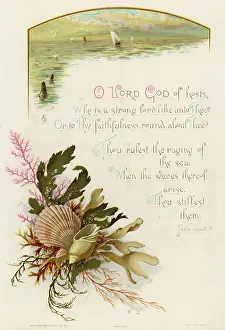 O LORD GOD of hosts,
Who is a strong lord like unto Thee?
Or to Thy faithfulness round about Thee?
Thou rulest the raging of
the sea:
When the waves thereof
arise,
Thou stillest
them.